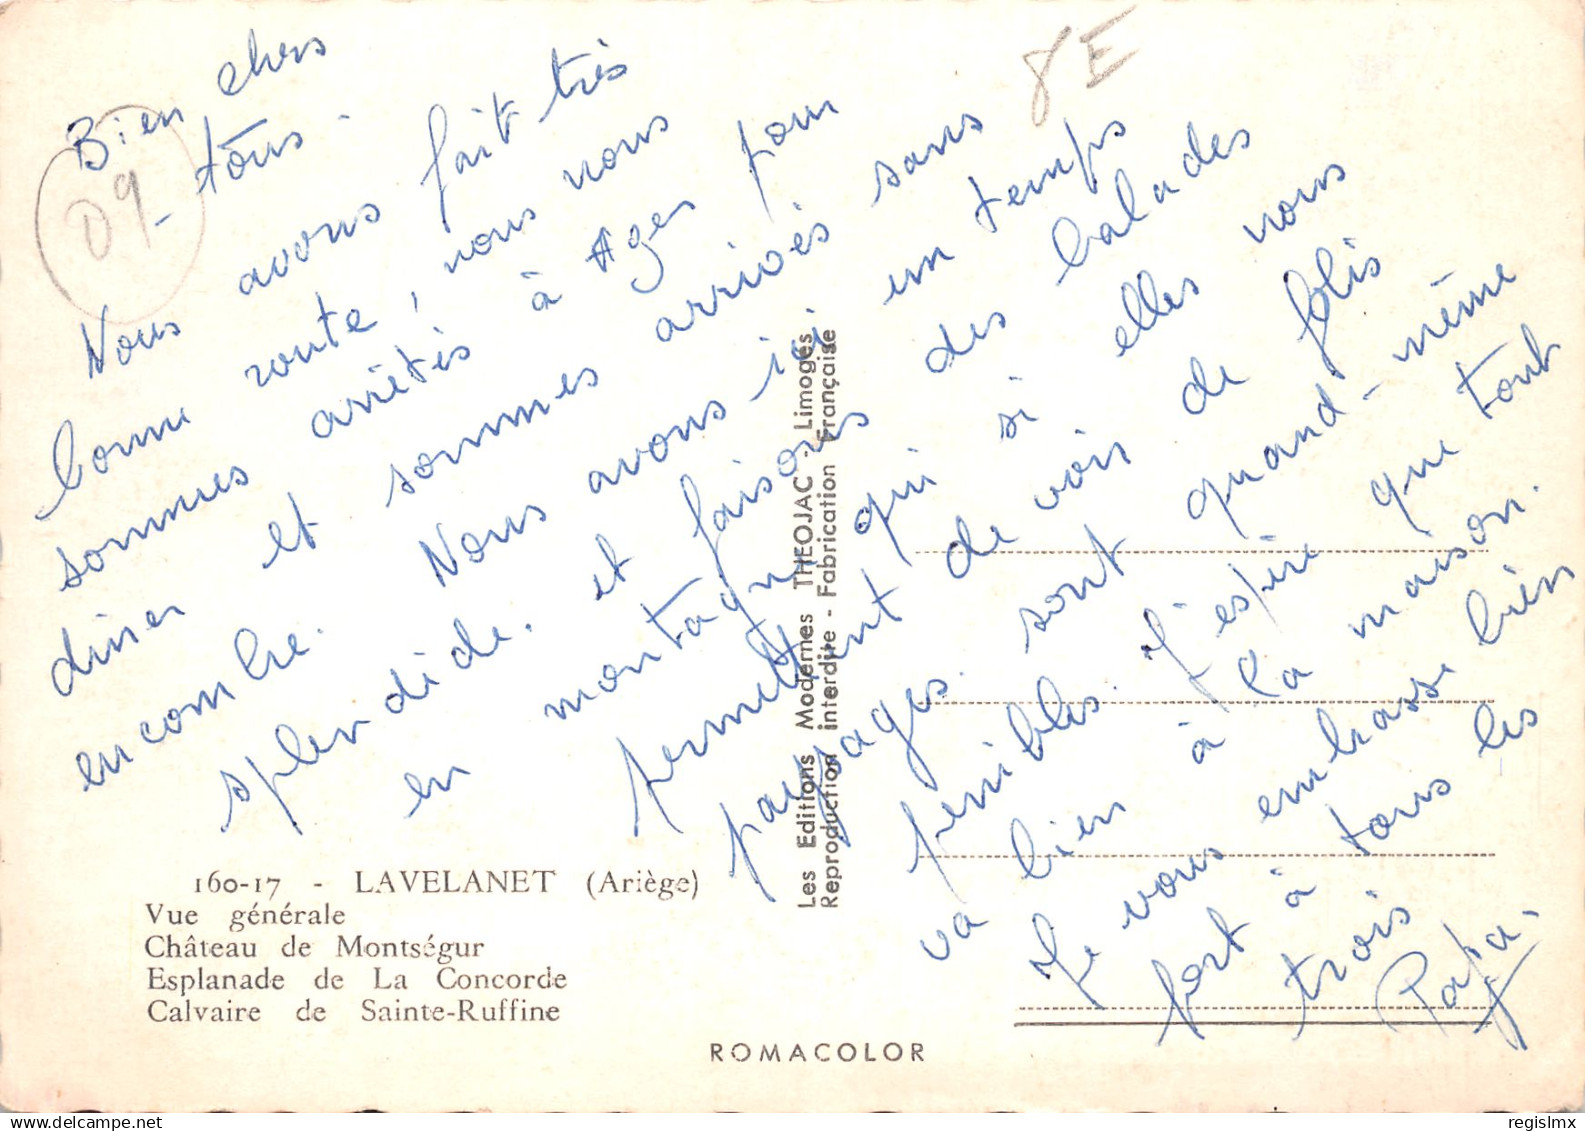 Bien chers
tous -
Nous avons fait très
bonne route, nous nous
sommes arrêtés à Ages pour
diner et sommes arrivés sans
encombre. Nous avons ici un temps
splendide. et faisons des balades
en montagne qui si elles nous
permettent de voir de folis
paysages sont quand-même
penibles. J'espère que tout
va bien à la maison.
Je vous embrasse bien
fort à tous les
trois
Papa.
09
8E
160-17 - LAVELANET (Ariège)
Vue générale
Château de Montségur
Esplanade de La Concorde
Calvaire de Sainte-Ruffine
Les Editions Modernes THEOJAC - Limoges
Reproduction interdite - Fabrication Française
ROMACOLOR
regislmx